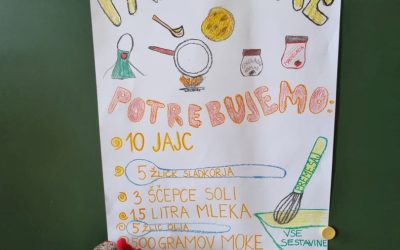 POTREBUJEMO:
10 JAJC
5 ŽLICK SLADKORJA
3 ŠČEPCE SOLI
1.5 LITRA MLEKA
5 ŽLIC OLJA
500 GRAMOV MOKE
VSE
SESTAVINE